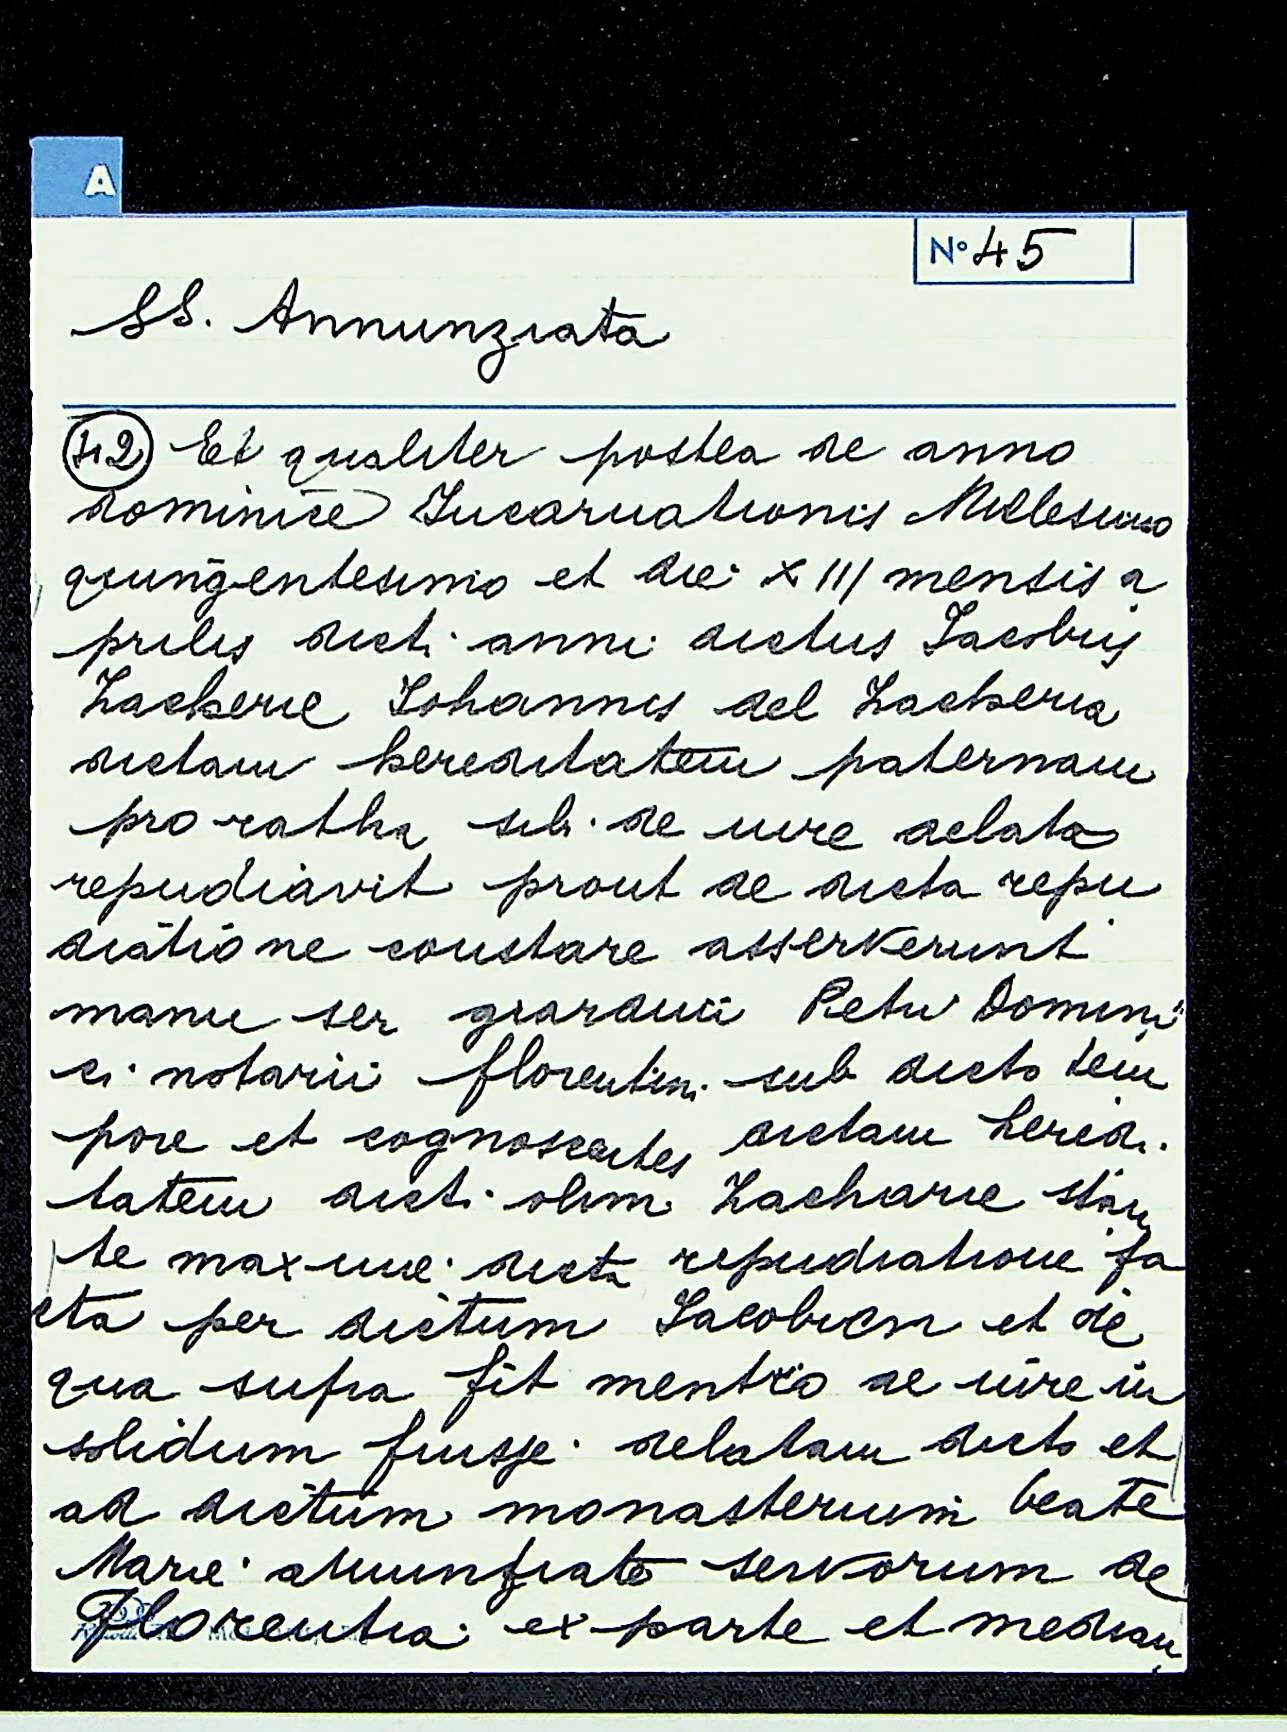 A
Nº 45
SS. Annunziata
42 Et qualiter postea de anno
dominice Incarnationis Millesimo
quingentesimo et die XIII mensis a
prilis dicti anni dictus Iacobus
Zacherie Iohannis del Zacheria
dictam hereditatem paternam
pro ratha sibi de iure delata
repudiavit prout de dicta repu
diatione constare asserverunt
manu ser Petri Domini
ci notarii florentini sub dicto tem
pore et cognoscentes dictam heredi
tatem dicti olim Zacharie stan
te maxime dicta repudiatione fa
cta per dictum Iacobum et de
qua supra fit mentio de iure in
solidum fuisse delatam dicto et
ad dictum monasterium beate
Marie Annunziate servorum de
Florentia ex parte et median